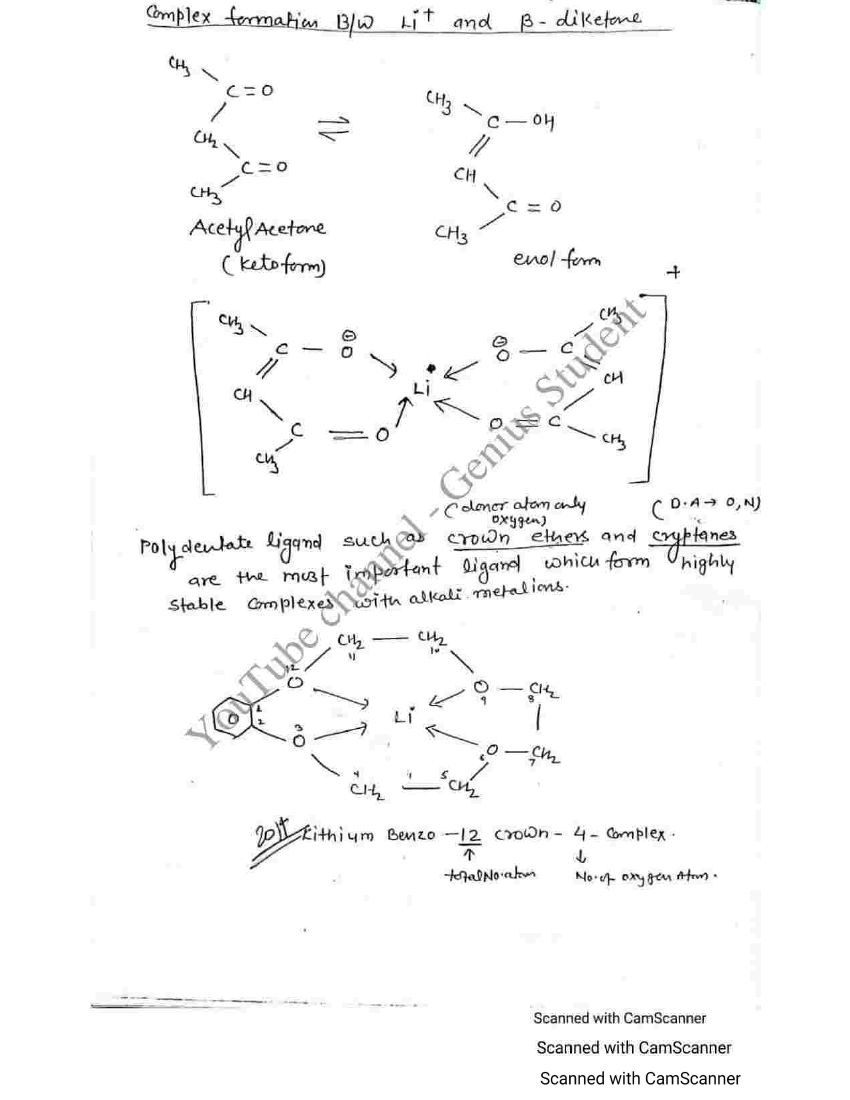 Complex formation B/W Li⁺ and β-diketone
CH3
C=O
CH2
C=O
CH3
⇌
CH3
C—OH
CH
C=O
CH3
AcetylAcetone
(ketoform)
enol form
+
CH3
C — O ⊖
CH
C = O
CH3
Li
⊖ O — C
CH3
CH
O = C
CH3
(donor atom only
oxygen)
(D.A→ O,N)
Polydentate ligand such as crown ethers and cryptanes
are the most important ligand which form highly
stable complexes with alkali metal ions.
CH2 — CH2
11
10
12
O
O — CH2
9
8
1
2
O
Li
3
O
O — CH2
6
7
4
5
CH2 — CH2
Lithium Benzo -12 crown - 4 - Complex.
↑
↓
total No. atom
No. of oxygen Atom.
YouTube channel - Genius Student
Scanned with CamScanner
Scanned with CamScanner
Scanned with CamScanner